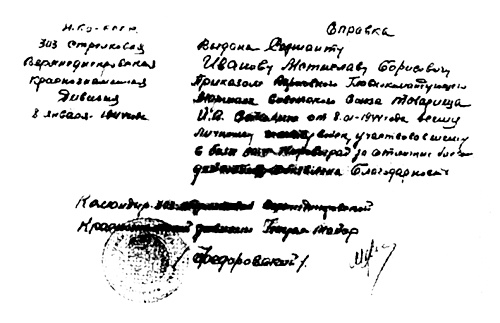 Н.К.О. - СССР.
303 Стрелковая
Верхнеднепровская
Краснознаменная
Дивизия
8 января 1944 года
Справка
Выдана Сержанту
Иванову Мстиславу Борисовичу
Приказом Верховного Главнокомандующего
Маршала Советского Союза Товарища
И.В. Сталина от 8.01-1944 года всему
Личному составу войск, участвовавшему
в боях за Кировоград за отличные боевые
действия объявлена Благодарность
Командир 303 Верхнеднепровской
Краснознаменной дивизии Генерал Майор
/Федоровский/.